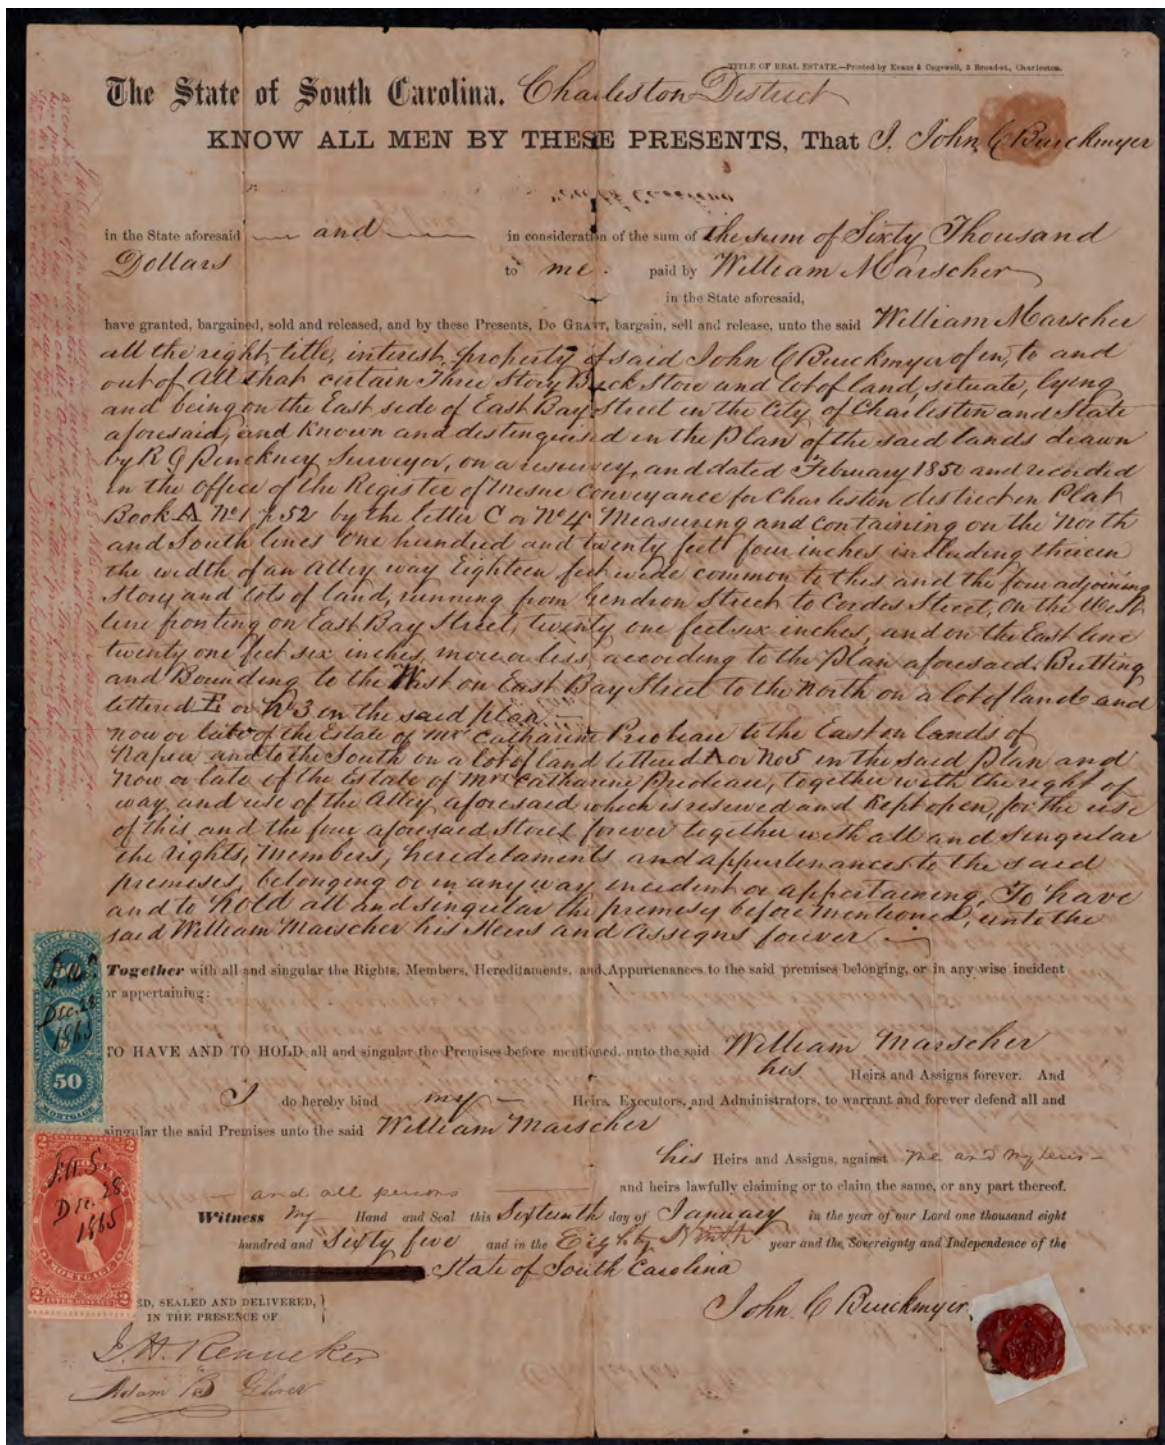 TITLE OF REAL ESTATE.—Printed by Evans & Cogswell, 3 Broad-st., Charleston.
The State of South Carolina. Charleston District
KNOW ALL MEN BY THESE PRESENTS, That I. John C Buickmyer
in the State aforesaid — and — in consideration of the sum of the sum of Sixty Thousand
Dollars to me. paid by William Marscher
in the State aforesaid,
have granted, bargained, sold and released, and by these Presents, Do Grant, bargain, sell and release, unto the said William Marscher
all the right, title, interest, property of said John C Buickmyer of in, to and
out of All that certain Three Story Brick Store and lot of land, situate, lying
and being on the East side of East Bay Street in the City of Charleston and State
aforesaid, and Known and distinguised in the Plan of the said lands drawn
by R Q Pinckney Surveyor, on a resurvey, and dated February 1850 and recorded
in the Office of the Register of Mesne Conveyance for Charleston district in Plat
Book A No 1 p 52 by the letter C or No 4 Measuring and containing on the North
and South lines One hundred and twenty feet four inches including therein
the width of an Alley way Eighteen feet wide common to this and the four adjoining
Story and lots of land, running from Gendron Street to Cordes Street, On the West
line fronting on East Bay Street, twenty one feet six inches, and on the East line
twenty one feet six inches, more or less, according to the Plan aforesaid. Butting
and Bounding to the West on East Bay Street to the North on a lot of land and
lettered E or No 3 on the said plan
now or late of the Estate of Mrs Catharine Prioleau to the East on lands of
Napier and to the South on a lot of land lettered A or No 5 in the said Plan and
Now or late of the Estate of Mrs Catharine Prioleau, together with the right of
way, and use of the Alley aforesaid which is reserved and Kept open, for the use
of this and the four aforesaid Stores forever together with all and singular
the rights, Members, heredetaments and appurtenances to the said
premises, belonging or in any way incident or appertaining, To have
and to hold all and singular the premises before mentioned, unto the
said William Marscher his Heirs and Assigns forever
Together with all and singular the Rights, Members, Hereditaments, and Appurtenances to the said premises belonging, or in any wise incident
or appertaining:
TO HAVE AND TO HOLD all and singular the Premises before mentioned, unto the said William Marscher
his Heirs and Assigns forever. And
I do hereby bind my — Heirs, Executors, and Administrators, to warrant and forever defend all and
singular the said Premises unto the said William Marscher
his Heirs and Assigns, against me and my heirs
and all persons and heirs lawfully claiming or to claim the same, or any part thereof.
Witness My Hand and Seal this Sixteenth day of January in the year of our Lord one thousand eight
hundred and Sixty five and in the Eighty Ninth year and the Sovereignty and Independence of the
State of South Carolina
ED, SEALED AND DELIVERED,
IN THE PRESENCE OF
John. C Buickmyer
J. H. Renneker
Adam B
50
Dec. 28
1865
50
MORTGAGE
2 2
J.H.S.
Dec. 28
1865
MORTGAGE
2 2